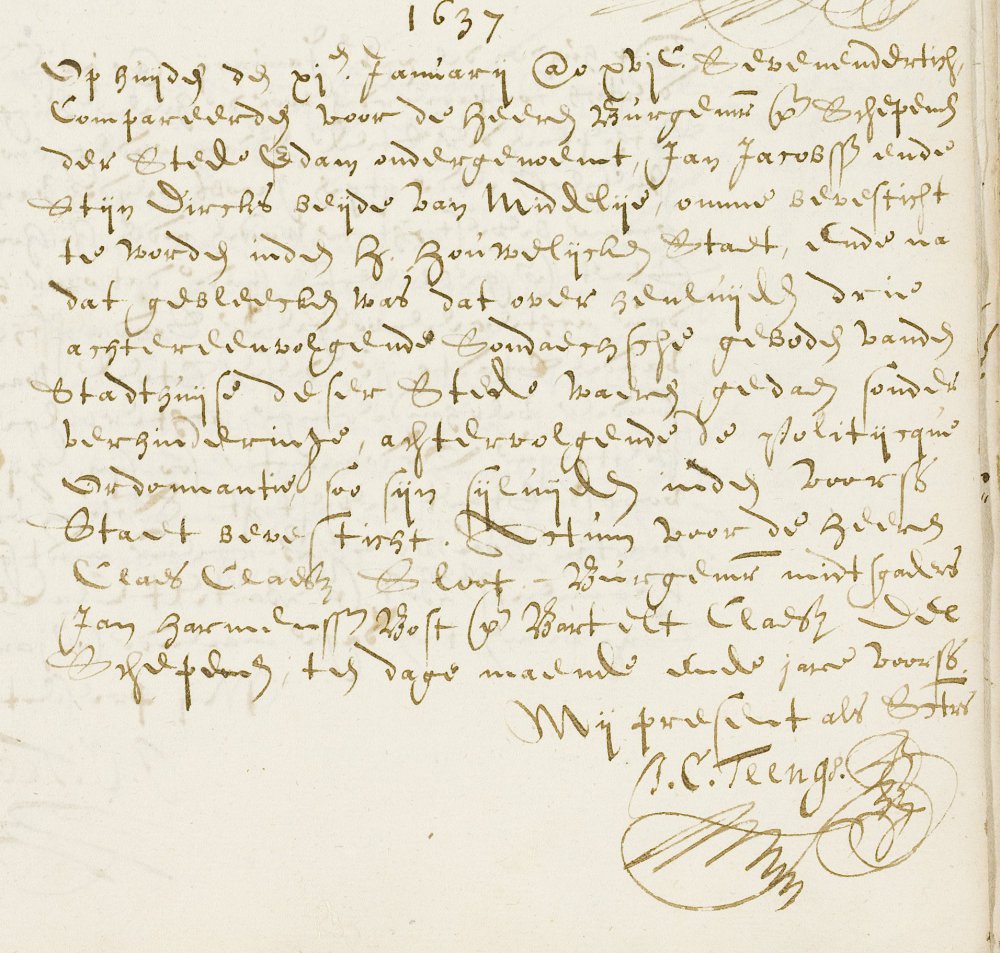 1637
Op huijden den xjen. Januarij @o xvjC Sevenendertich,
Compareerden voor de heeren Burgemrs (en) Schepenen
der Stede Edam ondergenoemt, Jan Jacobss ende
Stijn Dircks beijde van Middelije, omme bevesticht
te worden inden H. Houwelijcken Staet, Ende na
dat gebleecken was dat over henluijden drie
achtereenvolgende Sondaechsche geboden vanden
Stadthuijse deser Stede waeren gedaen sonder
verhinderinge, achtervolgende de politijcque
Ordonnantie soo sijn sijluijden inden voorss
Staet bevesticht. Actum voor de heeren
Claes Claesz Sloot - Burgemr midtsgaders
Jan harmenssz Bost (en) Bartelt Claesz Del
Schepenen, ten dage maende ende jare voorss.
Mij present als Sctrs
J.C. Teengs.